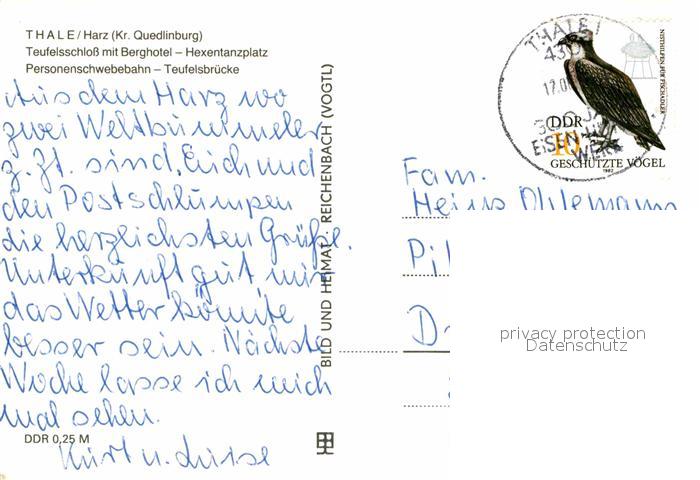 THALE/Harz (Kr. Quedlinburg)
Teufelsschloß mit Berghotel – Hexentanzplatz
Personenschwebebahn – Teufelsbrücke
Aus dem Harz wo
zwei Weltbürger
z. Zt. sind, Euch und
den Postschlumpen
die herzlichsten Grüße.
Unterkunft gut, nur
das Wetter könnte
besser sein. Nächste
Woche lasse ich mich
mal sehen.
Kurt u. Luise
DDR 0,25 M
BILD UND HEIMAT · REICHENBACH (VOGTL)
THALE
430
17.0
300 J
EISEN
WERK
NISTHILFEN FÜR FISCHADLER
DDR
10
GESCHÜTZTE VÖGEL
1982
Fam.
Heins
Pi
D
privacy protection
Datenschutz